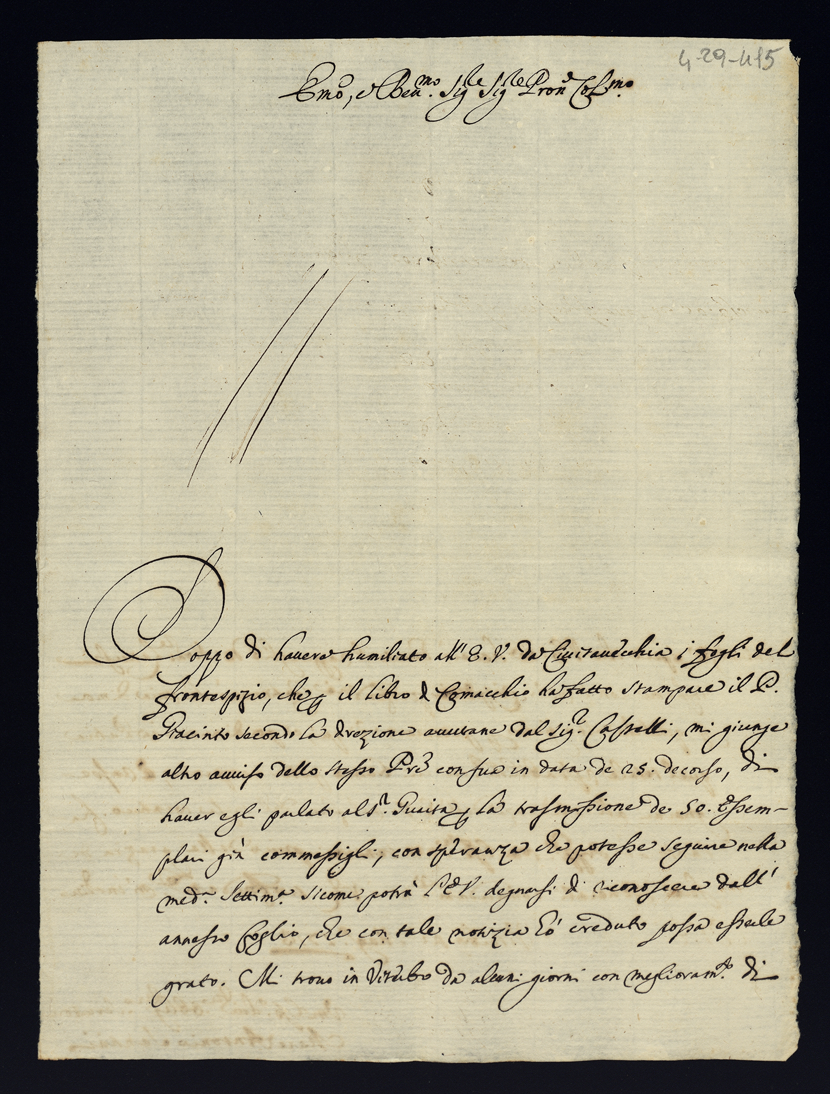 4-29-415
Emo, e Reu.mo Sig.re Sig.re Pron Col.mo
Doppo di hauere humiliato all'E.V. da Ciuitauecchia i fogli del
frontespizio, che p il libro di Comacchio ha fatto stampare il P.
Giacinto secondo la direzione auutane dal Sig.r Castelli, mi giunge
altro auuiso dello stesso Pre con sue in data de 25. decorso, di
hauer egli parlato al S.r Guaita p la trasmissione de 50. Essem-
plari già commessigli, con speranza che potesse seguire nella
med.a Settim.a sicome potrà l'E.V. degnarsi di riconoscere dall'
annesso foglio, che con tale notizia hò creduto possa esserle
grato. Mi trouo in Viterbo da alcuni giorni con miglioram.to di